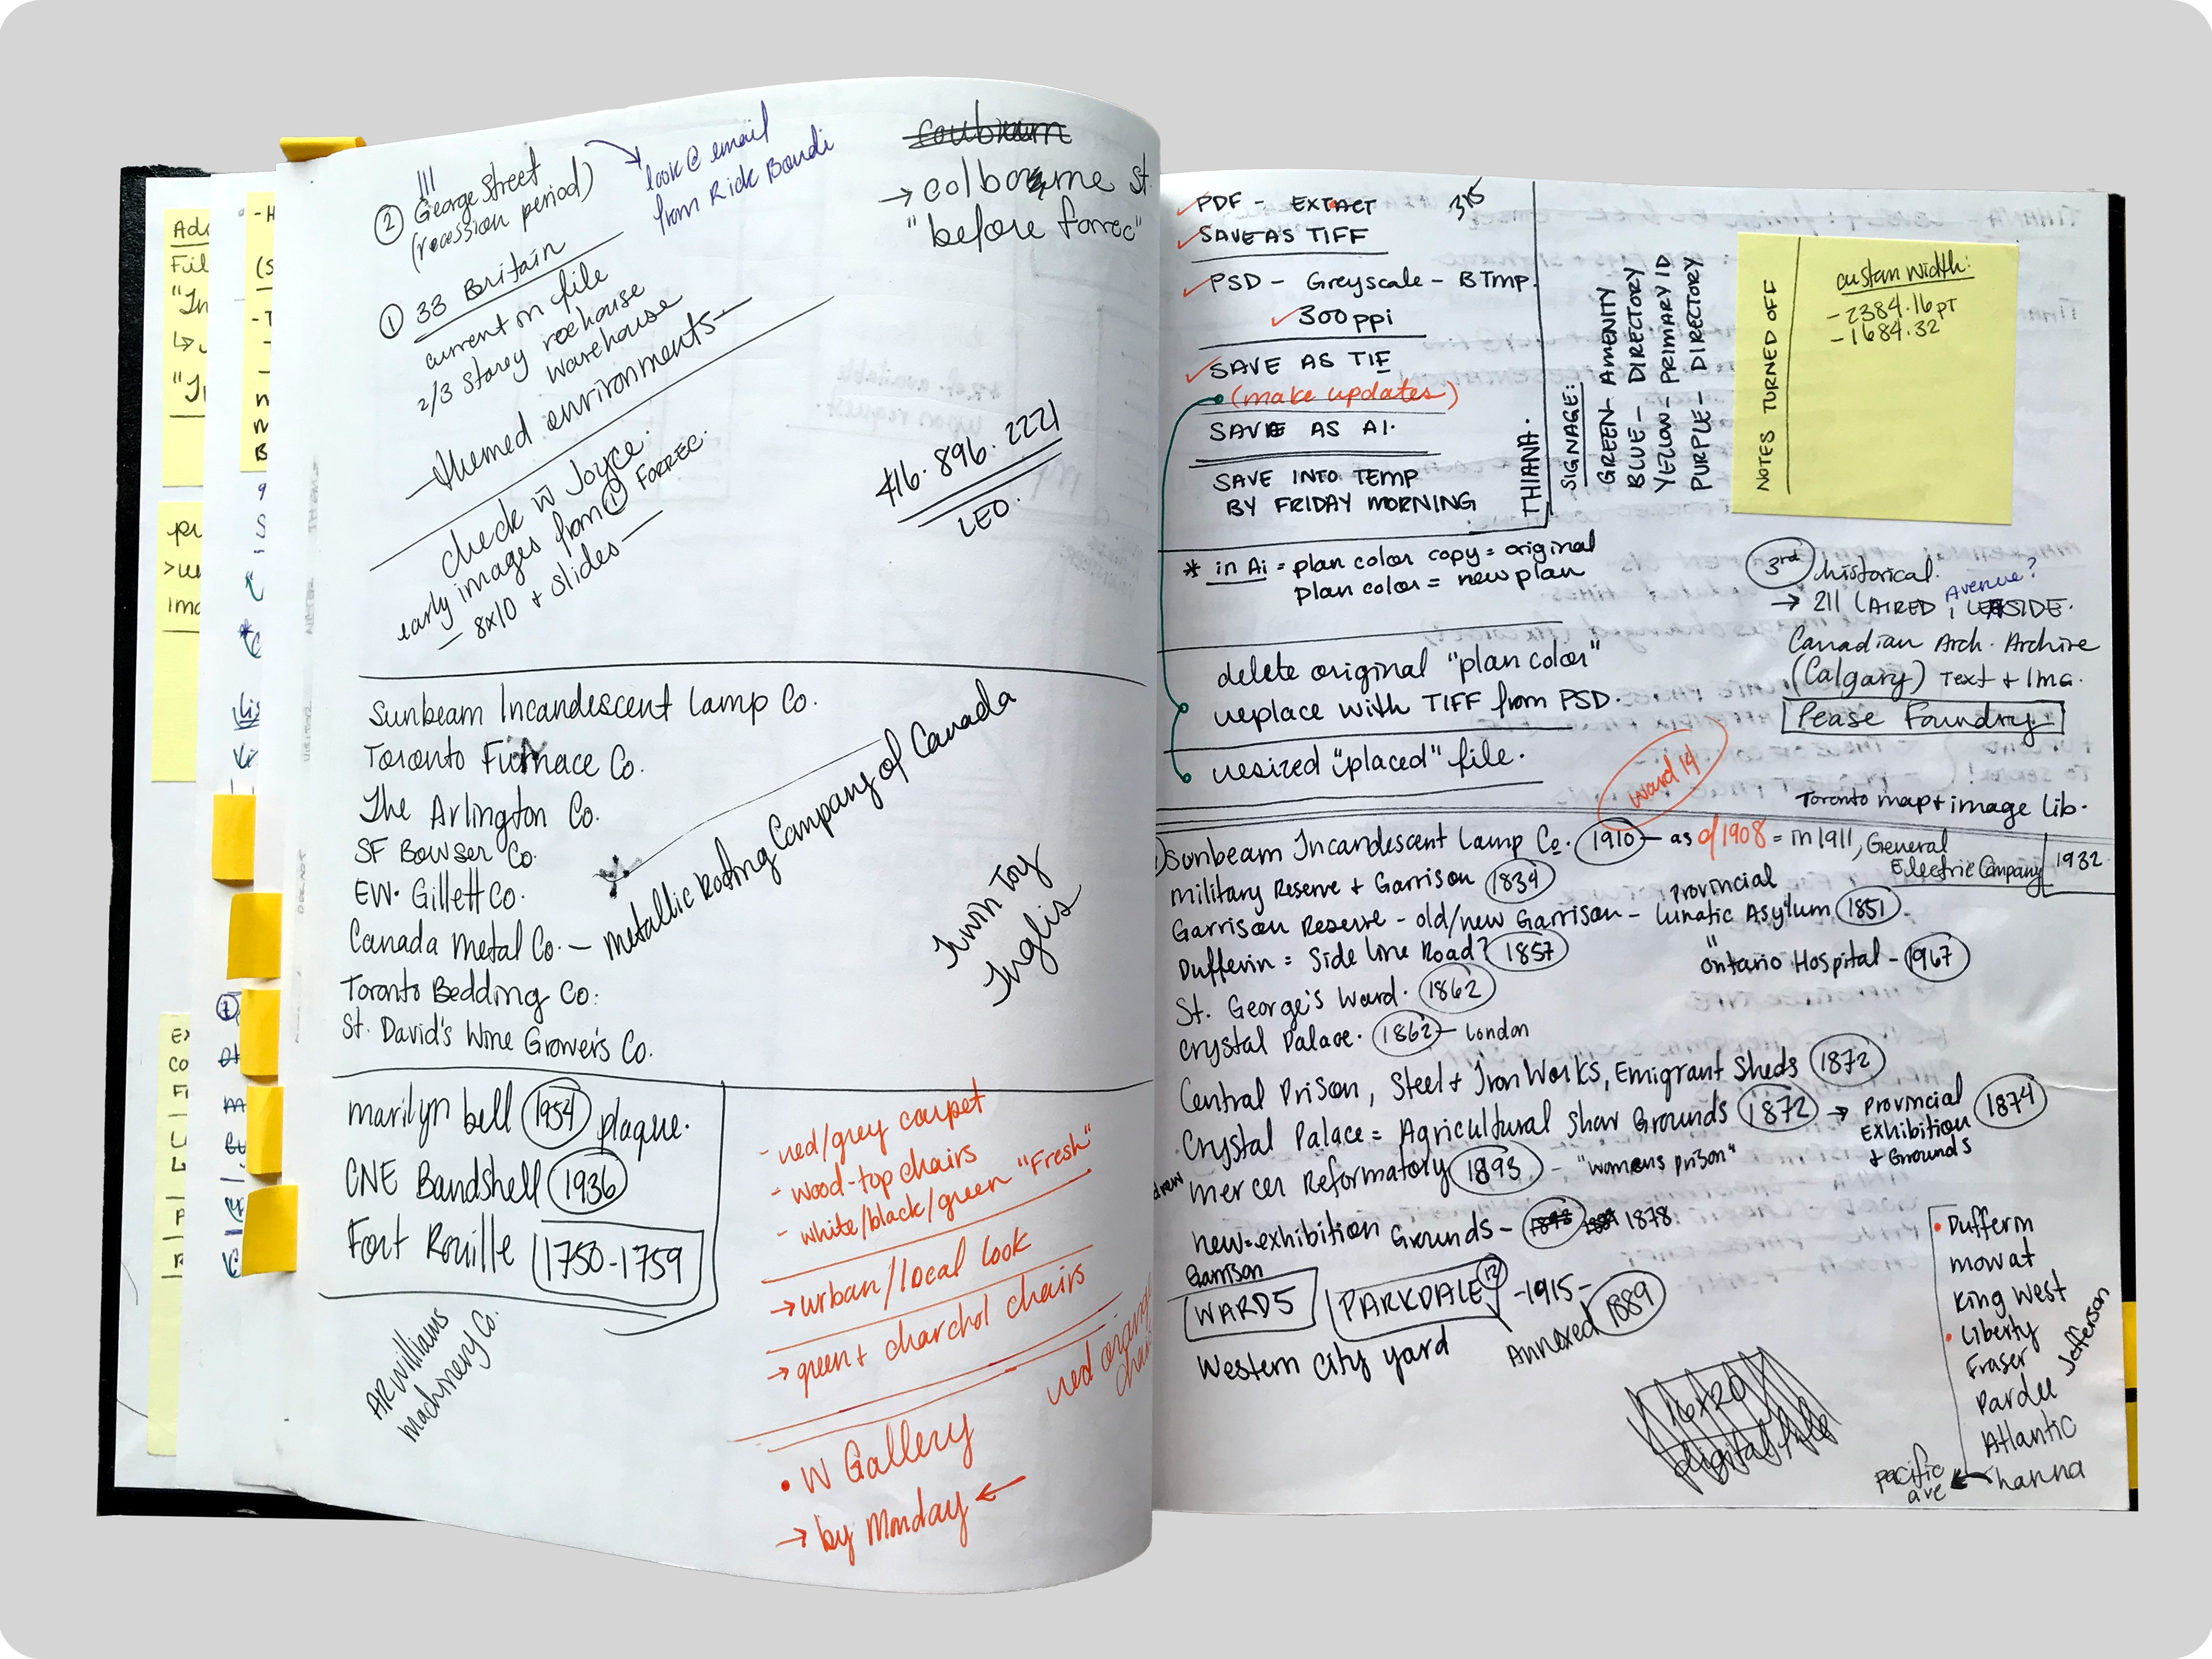 Ad
Fil
"In
"In
-H
(S
-T
-
n
n
B
pr
>u
Ima
Lis
Ex
Co
F
L
L
P
F
② George Street
(recession period)
look @ email
from Rick Boudi
① 33 Britain
current on file
2/3 Storey rowhouse
warehouse
- themed environments -
check w Joyce.
early images from ① FORREC.
- 8x10 + slides -
→ colborne st.
"before forrec"
416. 896. 2221
LEO.
Sunbeam Incandescent Lamp Co.
Toronto Furnace Co.
The Arlington Co.
SF Bowser Co.
EW. Gillett Co.
Canada Metal Co. - Metallic Roofing Company of Canada
Toronto Bedding Co.
St. David's Wine Growers Co.
Irwin Toy
Inglis
marilyn bell 1954 plaque.
CNE Bandshell 1936
Fort Rouille 1750-1759
AR Williams
Machinery Co.
- red/grey carpet
- wood-top chairs
- white/black/green "Fresh"
→ urban/local look
→ green + charchol chairs
red orange
chair
• W Gallery
→ by Monday ←
PDF - EXTRACT
SAVE AS TIFF
PSD - Greyscale - BTmp.
300 ppi
SAVE AS TIF
(make updates)
SAVE AS AI.
SAVE INTO TEMP
BY FRIDAY MORNING
THIANA.
SIGNAGE:
GREEN - AMENITY
BLUE - DIRECTORY
YELLOW - PRIMARY ID
PURPLE - DIRECTORY
NOTES TURNED OFF
custom width:
- 2384.16 pt
- 1684.32
* in Ai = plan color copy = original
plan color = new plan
delete original "plan color"
replace with TIFF from PSD.
resized "placed" file.
3rd historical.
→ 211 LAIRED, LEASIDE.
Avenue?
Canadian Arch. Archive
(Calgary) Text + Img.
Pease Foundry.
Toronto map + image lib.
ward 14
Sunbeam Incandescent Lamp Co. 1910 - as of 1908 = in 1911, General
Electric Company 1932
Military Reserve + Garrison 1834
Garrison Reserve - old/new Garrison - Provincial Lunatic Asylum 1851
Dufferin = Side Line Road? 1857
" Ontario Hospital - 1967
St. George's Ward. 1862
Crystal Palace. 1862 - London
Central Prison, Steel + Iron Works, Emigrant Sheds 1872
Crystal Palace = Agricultural Show Grounds 1872 → Provincial 1874
Exhibition
+ Grounds
mercer Reformatory 1893 - "womens prison"
new = exhibition Grounds - 1878.
Garrison
WARD 5 PARKDALE 12 - 1915 -
Annexed 1889
Western City yard
16x20
digital file
• Dufferin
mowat
King West
• Liberty
Fraser
Pardee
Jefferson
Atlantic
hanna
pacific
ave